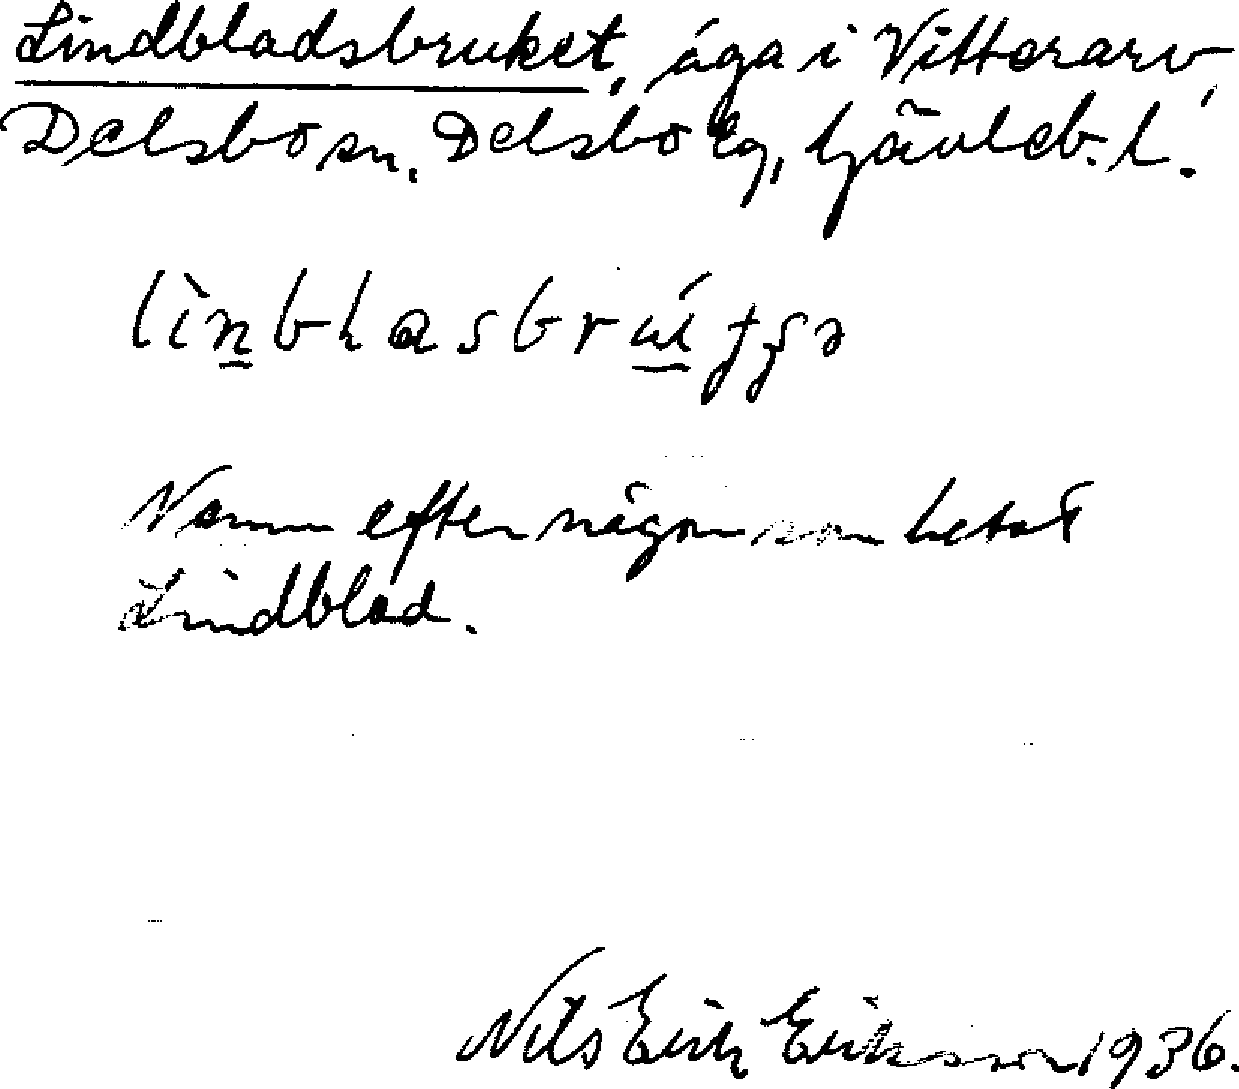 Lindbladsbruket, äga i Vitterarv,
Delsbo sn, Delsbo tg, Gävleb. l.
Namn efter någon som hetat
Lindblad.
Nils Erik Eriksson 1936.